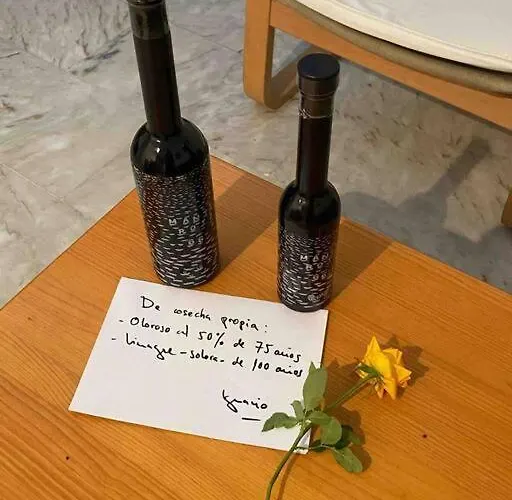 MÁN
MÁN
De cosecha propia:
- Oloroso al 50% de 75 años
- Vinagre -solera- de 100 años
Ignacio